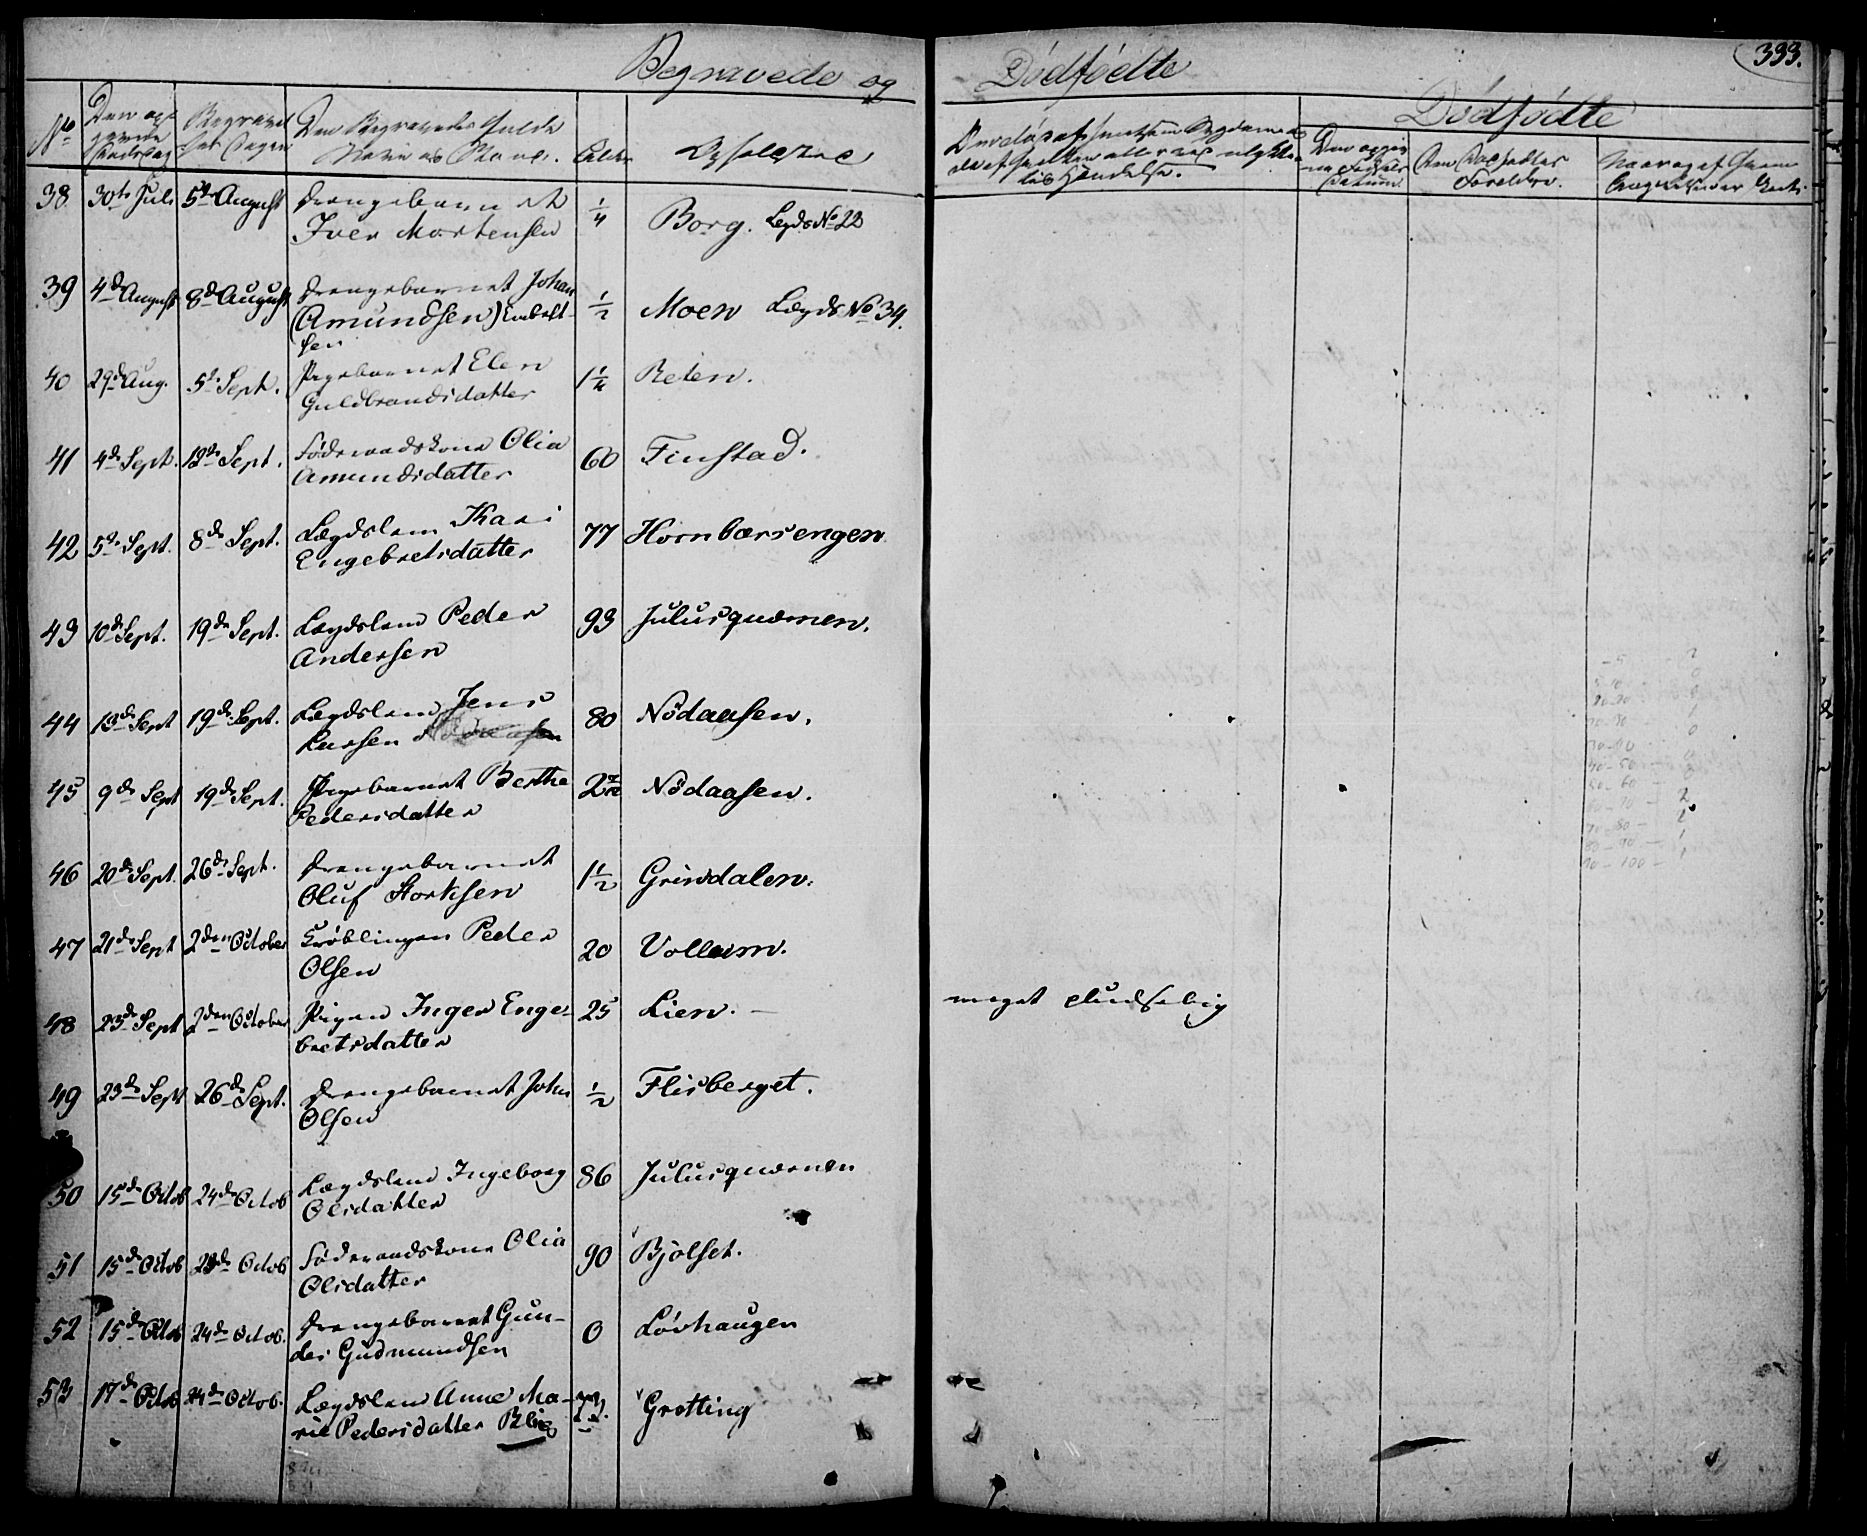 Begravede og Dødfødte
333.
Dødfødte
No Den op- givne Dødsdag Begravel- ses Dagen Den Begravedes fulde Navn og Stand. Alder Opholdssted
Den opgiv- ne Fødsels Datum De Dødfødtes Forældre.
38 30te Juli 5te August Drengebarnet Iver Mortensen 1/4 Borg. Legds No 22
39 4de August 8de August Drengebarnet Johan (Amundsen) Embret- sen 1/2 Moen Legds No 34.
40 29de Aug. 5te Sept. Pigebarnet Elen Guldbrandsdatter 1 1/4 Reten.
41 4de Sept. 12de Sept. Føderaadskone Olia Amundsdatter 60 Finstad.
42 5te Sept. 8de Sept. Lægdslem Kari Engebretsdatter 77 Hornbærsengen
43 10de Sept. 19de Sept. Lægdslem Peder Andersen 93 Julusquærnen.
44 13de Sept 19de Sept. Lægdslem Jens Larsen 80 Nödaasen.
45 9de Sept 19de Sept. Pigebarnet Berthe Pedersdatter 2 Nödaasen.
46 20de Sept. 26de Sept. Drengebarnet Oluf Storksen 1 1/2 Grindalen.
47 21de Sept 2den October Krøblingen Peder Olsen 20 Vollum.
48 23de Sept 2den October Pigen Inger Enge- bretsdatter 25 Lien. – meget pludselig
49 23de Sept 26de Sept. Drengebarnet John Olsen 1/2 Flisberget.
50 15de Octob 24de Octob Lægdslem Ingeborg Olsdatter 86 Julusquærnen
51 15de Octob Octob Føderaadskone Olia Olsdatter 90 Bjölset.
52 15de Octob 24de Octob. Drengebarnet Gun- der Gudmundsen 0 Lövhaugen
53 17de Octob 24de Octob. Lægdslem Anne Ma- rie Pedersdatter Grötting